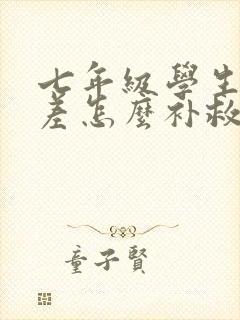 七年級學生
差怎麼補救
童子賢